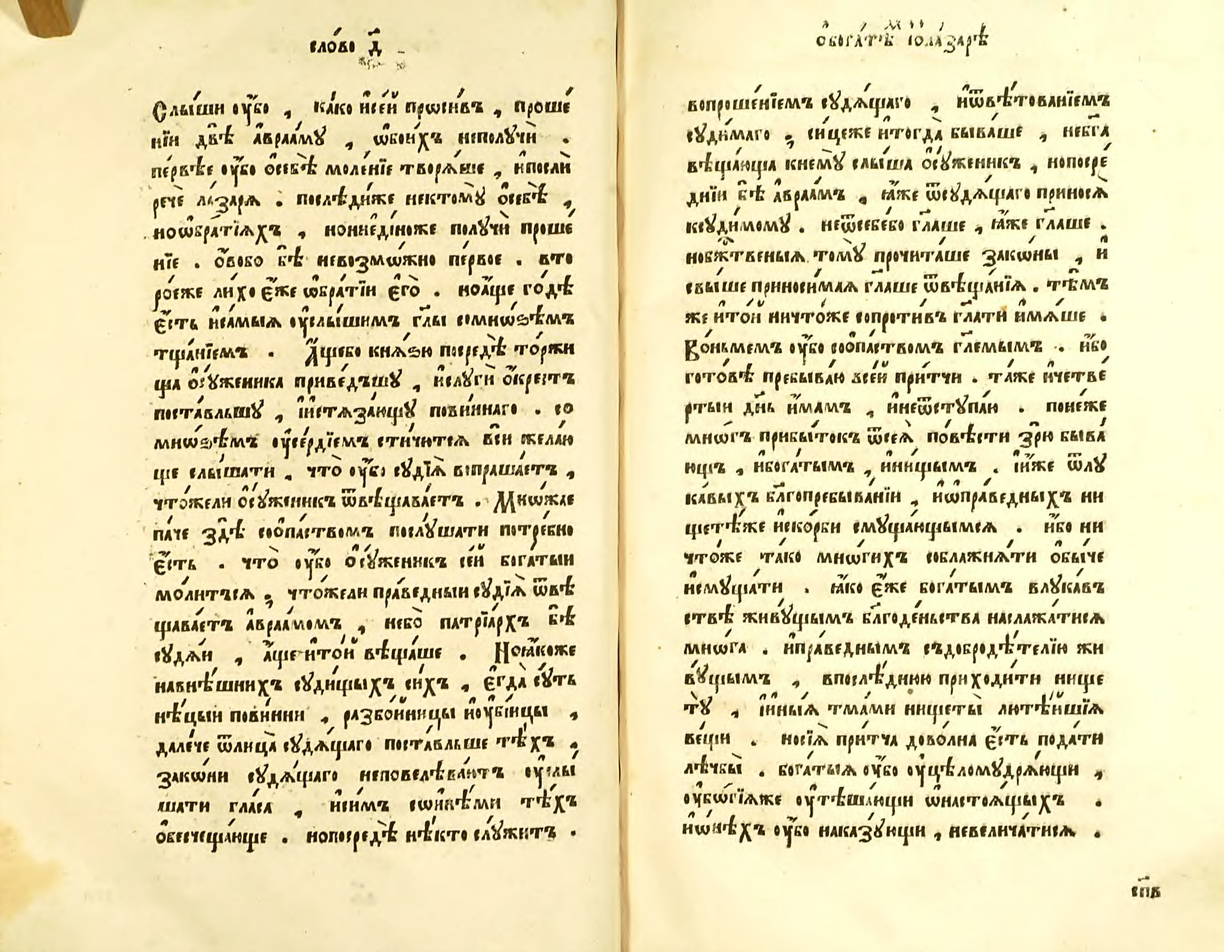 сло́во д҃
Слы́ши оу҆̀бо , ка́ко и҆се́й про́сивъ , проше́
нїи двѣ̀ а҆враа́мꙋ , ѡ҆бои́хъ неполꙋчѝ .
пе́рвѣе оу҆̀бо ѡ҆себѣ̀ моле́нїе творѧ́ше , и҆послѝ
речѐ ла́зарѧ . послѣди́же некто́мꙋ ѡ҆себѣ̀ ,
ноѡ҆бра́тїѧхъ , ноннеди́ноже полꙋчѝ проше́
нїе . ѻ҆́вобо бѣ̀ невозмо́жно пе́рвое . вто
ро́еже ли́хо є҆́же ѡ҆брати́и є҆гѡ̀ . ноа҆́ще го́дѣ
є҆́сть и҆са́мыѧ оу҆слы́шимъ гл҃ы сомно́ѕѣмъ
тща́нїемъ . А҆́щебо кнѧ́ѕю посредѣ̀ то́ржи
ща ѻ҆сꙋ́женика приве́дъшꙋ , и҆слꙋгѝ ѻ҆́крестъ
поста́вльшꙋ , и҆истѧза́ющꙋ пови́ннаго . со
мно́ѕѣмъ оу҆се́рдїемъ стичи́тсѧ всѝ жела́ю
ще слы́шати , что̀ оу҆̀бо сꙋдїѧ̀ вопраша́етъ ,
что́жели ѻ҆сꙋ́женикъ ѿвѣщава́етъ . Мно́жае
па́че здѣ̀ соѻ҆па́ствомъ послꙋ́шати потре́бно
є҆́сть . что̀ оу҆̀бо ѻ҆сꙋ́женикъ се́й бога́тыи
мо́литъсѧ , что́жели пра́ведныи сꙋдїѧ̀ ѿвѣ
щава́етъ а҆враа́момъ , небо̀ патрїа́рхъ бѣ̀
сꙋдѧ́и , а҆́ще и҆то́й вѣща́ше . Ноꙗ҆́коже
навнѣ́шнихъ сꙋди́щыхъ си́хъ , є҆гда̀ сꙋ́ть
нѣ́цыи пови́нни , разбо́йницы и҆оу҆бі́йцы ,
дале́че ѿлица̀ сꙋдѧ́щаго поста́вльше тѣ́хъ ,
зако́ни сꙋдѧ́щаго неповелѣва́ютъ оу҆слы́
шати гла́са , и҆си́мъ сѡи҆нѣ́ми тѣ́хъ
ѻ҆безче́щающе . нопосредѣ̀ нѣ́кто слꙋ́житъ .
ѻ҆бога́тѣ и҆ѻ҆ла́зарѣ
вопроше́нїемъ сꙋдѧ́щаго , и҆ѿвѣ́тованїемъ
сꙋди́маго , си́цеже и҆тогда̀ быва́ше , небг҃а
вѣща́юща кнемꙋ̀ слы́ша ѻ҆сꙋ́женикъ , нопосре́
днїи бѣ̀ а҆враа́мъ , ꙗ҆́же ѿсꙋдѧ́щаго приносѧ̀
ксꙋди́момꙋ . неѿсебе́бо гл҃аше , ꙗ҆́же гл҃аше .
нобж҃твеныѧ томꙋ̀ прочита́ше зако́ны , и҆
свы́ше приноси́маѧ гл҃аше ѿвѣща́нїѧ . тѣ́мъ
же и҆то́й ничто́же сопроти́въ гл҃ати и҆мѧ́ше .
Во́ньмемъ оу҆̀бо соѻ҆па́ствомъ гл҃емымъ . и҆́бо
гото́вѣ пребыва́ю все́й при́тчи . та́же и҆четве́
ртыи дн҃ь и҆́мамъ , и҆неѿстꙋпа́ю . поне́же
мно́гъ прибы́токъ ѿсеѧ̀ по́вѣсти зрю̀ быва́
ющъ , и҆бога́тымъ , и҆ни́щымъ . и҆и҆́же ѿлꙋ
ка́выхъ бл҃гопребыва́нїи , и҆ѡ҆пра́ведныхъ ни
щетѣ́же и҆ско́рби смꙋща́ющымсѧ . и҆́бо ни
что́же та́ко мно́гихъ соблажнѧ́ти ѻ҆бы́че
и҆смꙋща́ти . ꙗ҆́ко є҆́же бога́тымъ влꙋка́в
ствѣ живꙋ́щымъ бл҃годе́ньства наслажа́тисѧ
мно́га . и҆пра́веднымъ съдобродѣ́телїю жи
вꙋ́щымъ , впослѣ́днюю приходи́ти нище
тꙋ̀ , и҆и҆ны́ѧ тма́ми нищеты̀ лютѣ́йшїѧ
ве́щи . носїѧ̀ при́тча дово́лна є҆́сть пода́ти
лѣчбы̀ . бога́тыѧ оу҆̀бо оу҆цѣломꙋ́дрѧющи ,
оу҆бѡ́гїѧже оу҆тѣша́ющи ѡ҆настоѧ́щыхъ .
и҆ѡ҆нѣ́хъ оу҆̀бо наказꙋ́ющи , невелича́тисѧ .
сп҃в